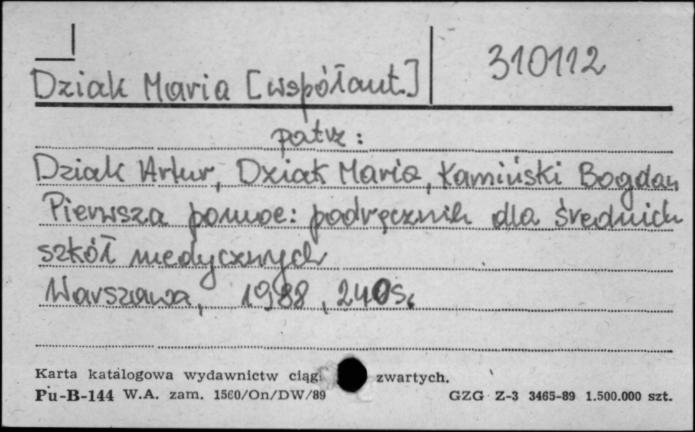 Dziak Maria [współaut.] 310112
patrz:
Dziak Artur, Dziak Maria, Kamiński Bogdan
Pierwsza pomoc: podręcznik dla średnich
szkół medycznych
Warszawa, 1988, 240s.
Karta katalogowa wydawnictw ciągł. zwartych.
Pu-B-144 W.A. zam. 1560/On/DW/89 GZG Z-3 3465-89 1.500.000 szt.